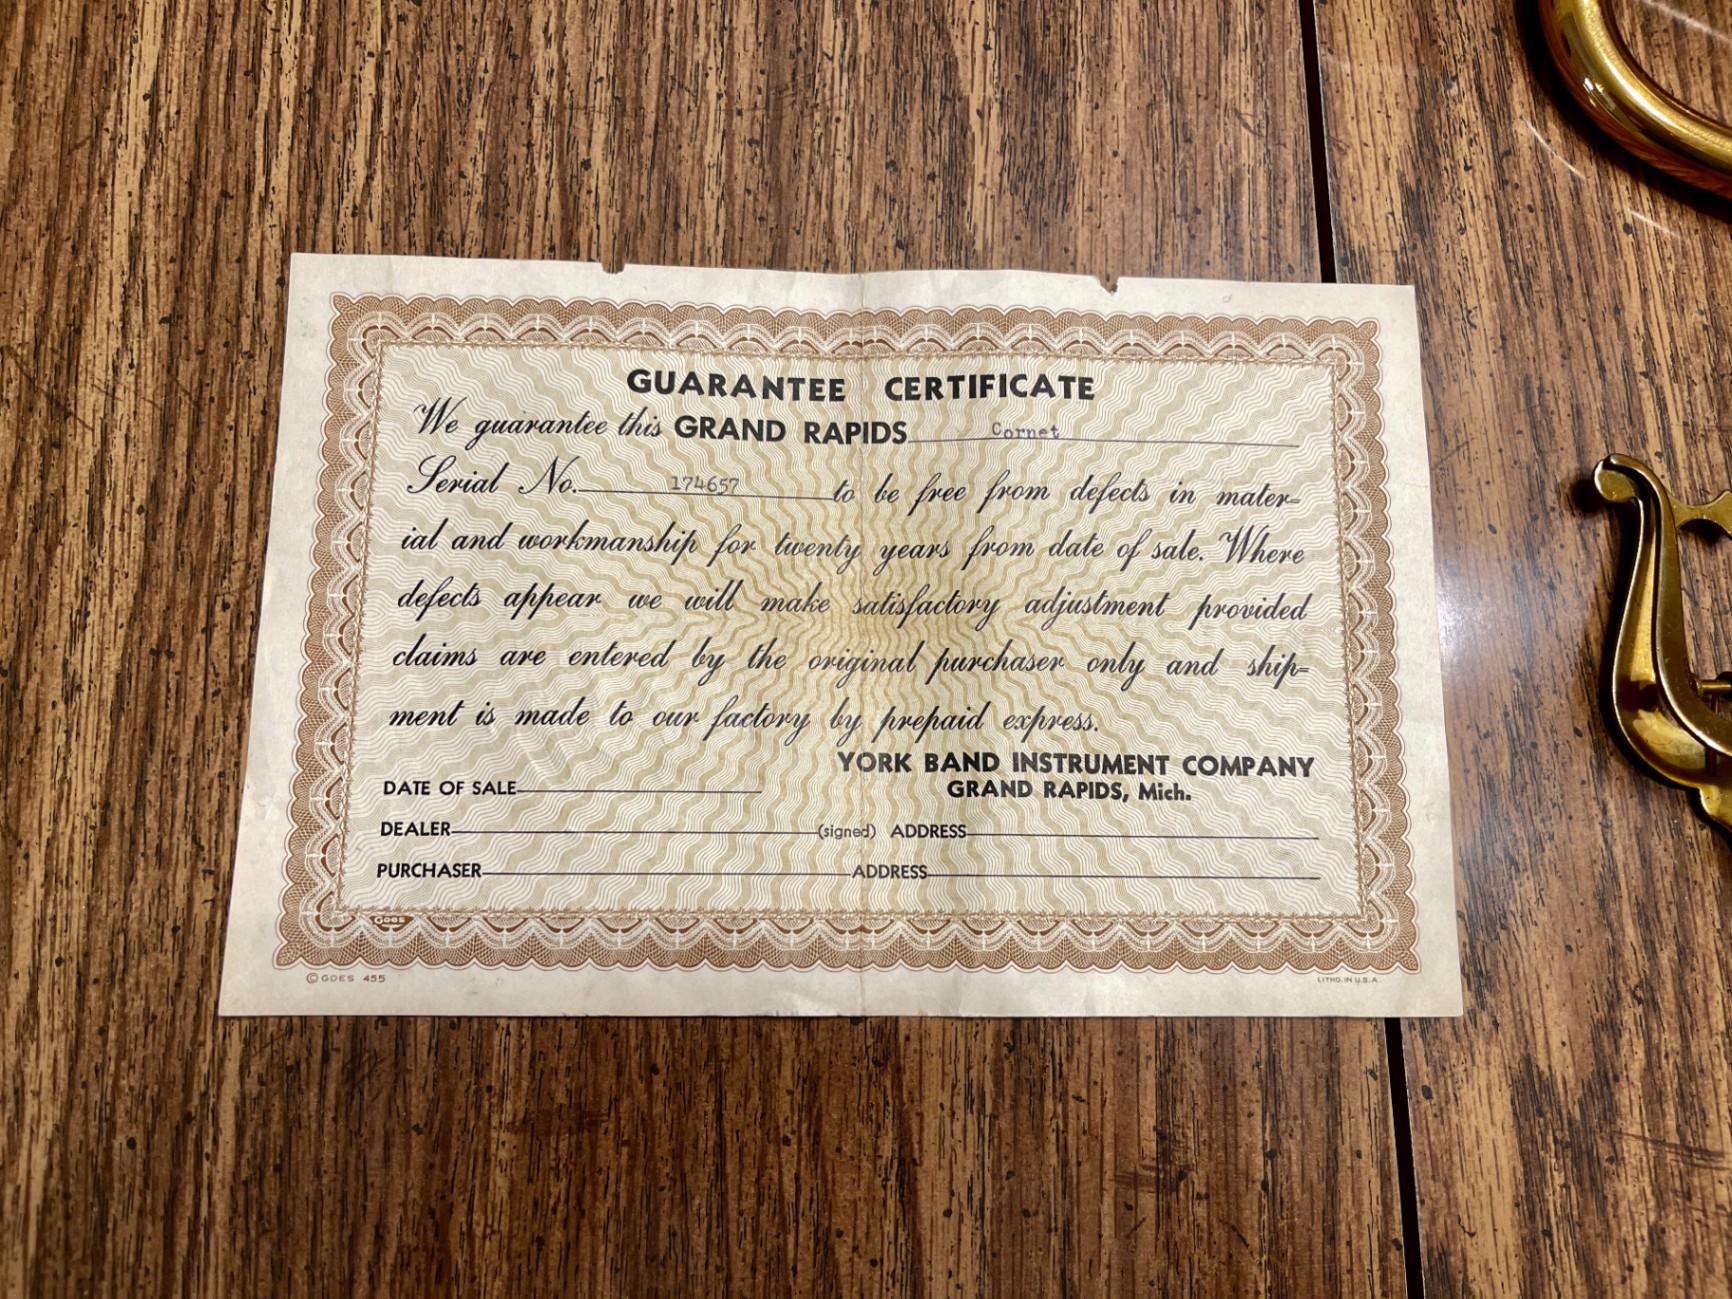 GUARANTEE CERTIFICATE
We guarantee this GRAND RAPIDS Cornet
Serial No. 174657 to be free from defects in mater-
ial and workmanship for twenty years from date of sale. Where
defects appear we will make satisfactory adjustment provided
claims are entered by the original purchaser only and ship-
ment is made to our factory by prepaid express.
YORK BAND INSTRUMENT COMPANY
GRAND RAPIDS, Mich.
DATE OF SALE
DEALER (signed) ADDRESS
PURCHASER ADDRESS
GOES
© GOES 455
LITHO. IN U.S.A.